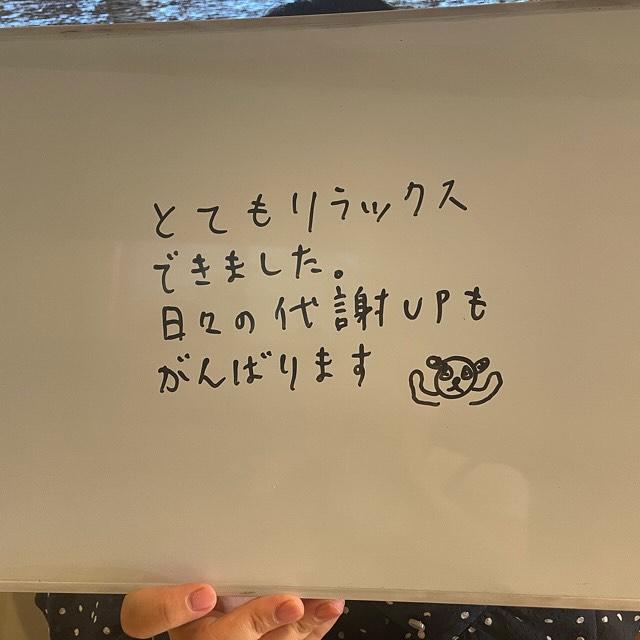 とてもリラックス
できました。
日々の代謝UPも
がんばります